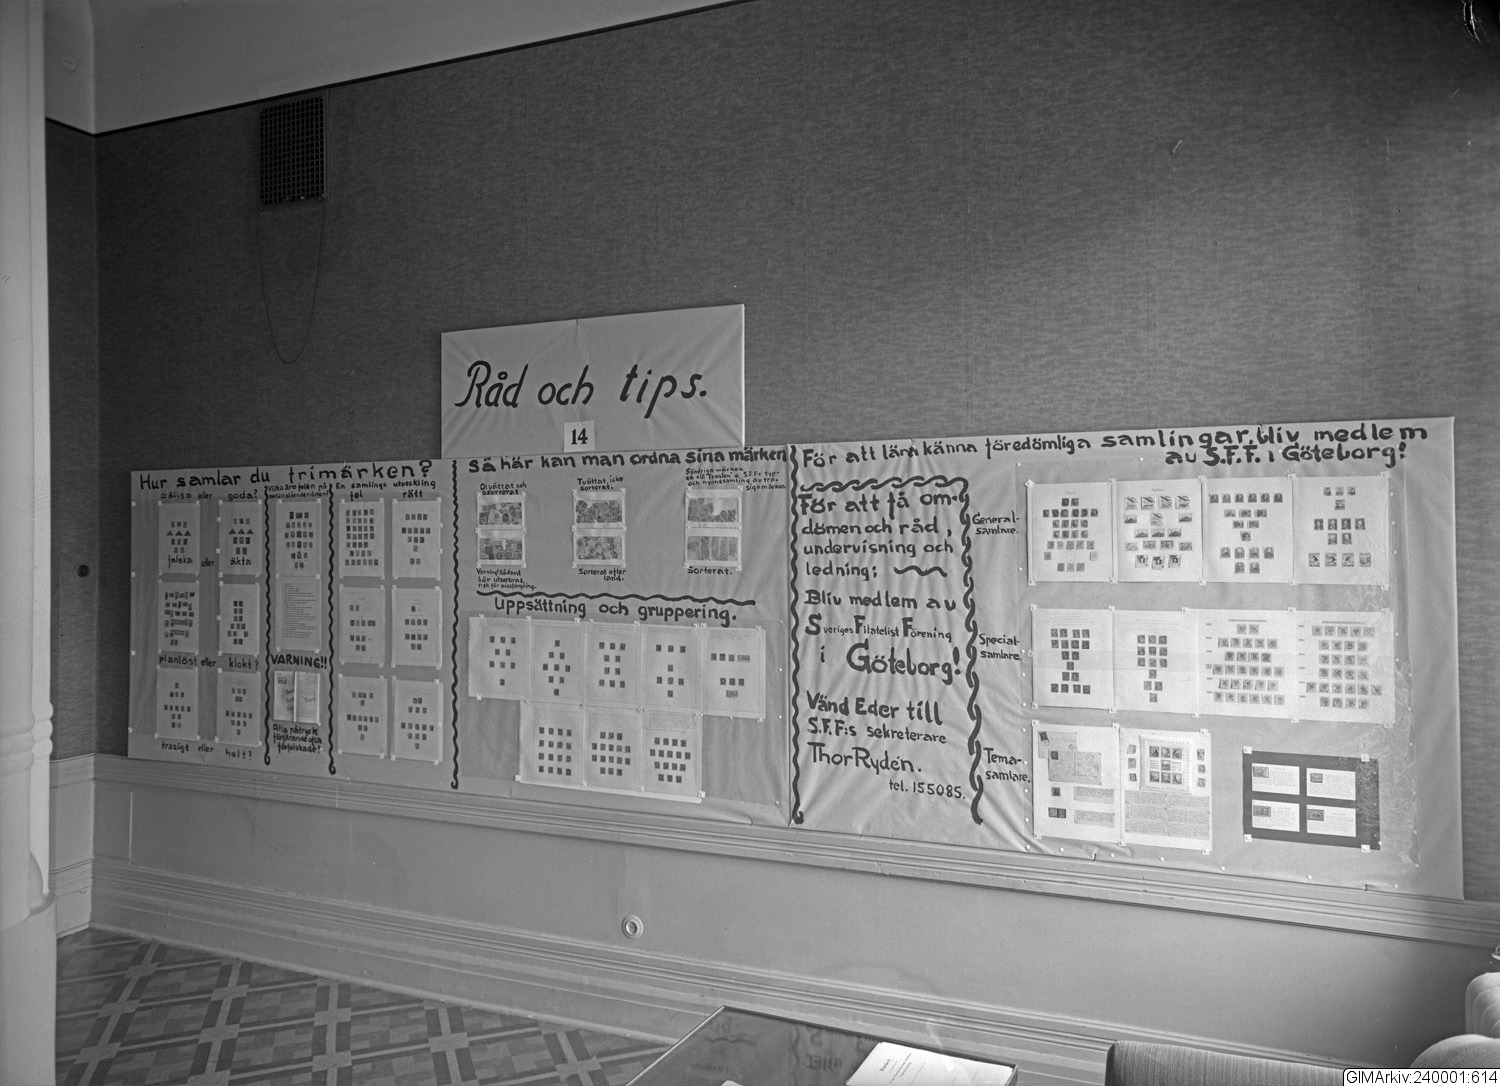 Råd och tips.
14
Hur samlar du frimärken?
dåliga eller goda?
falska eller äkta
planlöst eller klokt?
trasigt eller helt?
Vilka äro felen på
VARNING!!
Alla påtryck
förfärande ofta
förfalskade!
En samlings utveckling
fel rätt
Så här kan man ordna sina märken
Otvättat och
osorterat.
Tvättat, icke
sorterat.
Varning! Sådant
bör utsorteras,
risk för missfärgning.
Sorterat efter
land.
Sorterat.
Uppsättning och gruppering.
För att lära känna föredömliga samlingar, bliv medlem
av S.F.F. i Göteborg!
För att få om-
dömen och råd,
undervisning och
ledning;
Bliv medlem av
Sveriges Filatelist Förening
i Göteborg!
Vänd Eder till
S.F.F:s sekreterare
Thor Rydén.
tel. 155085.
General-
samlare.
Special-
samlare
Tema-
samlare.
GIMArkiv:240001:614